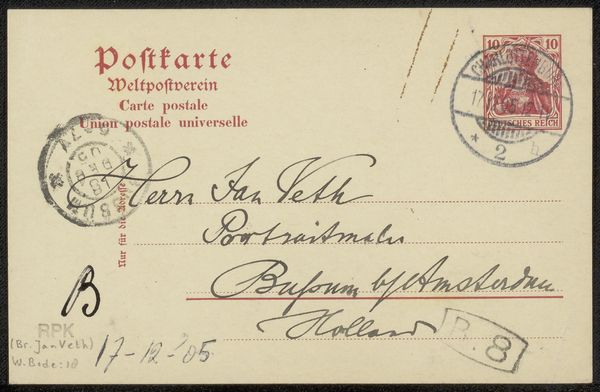 Postkarte
Weltpostverein
Carte postale
Union postale universelle
10 10
DEUTSCHES REICH
CHARLOTTENBURG
17
* 2 h
BUSSUM
Nur für die Adresse
Herrn Jan Veth
Portraitmaler
Bussum b/Amsterdam
Holland
B
B. 8
RPK
(Br. Jan Veth)
W. Bode: 18
17-12-'05